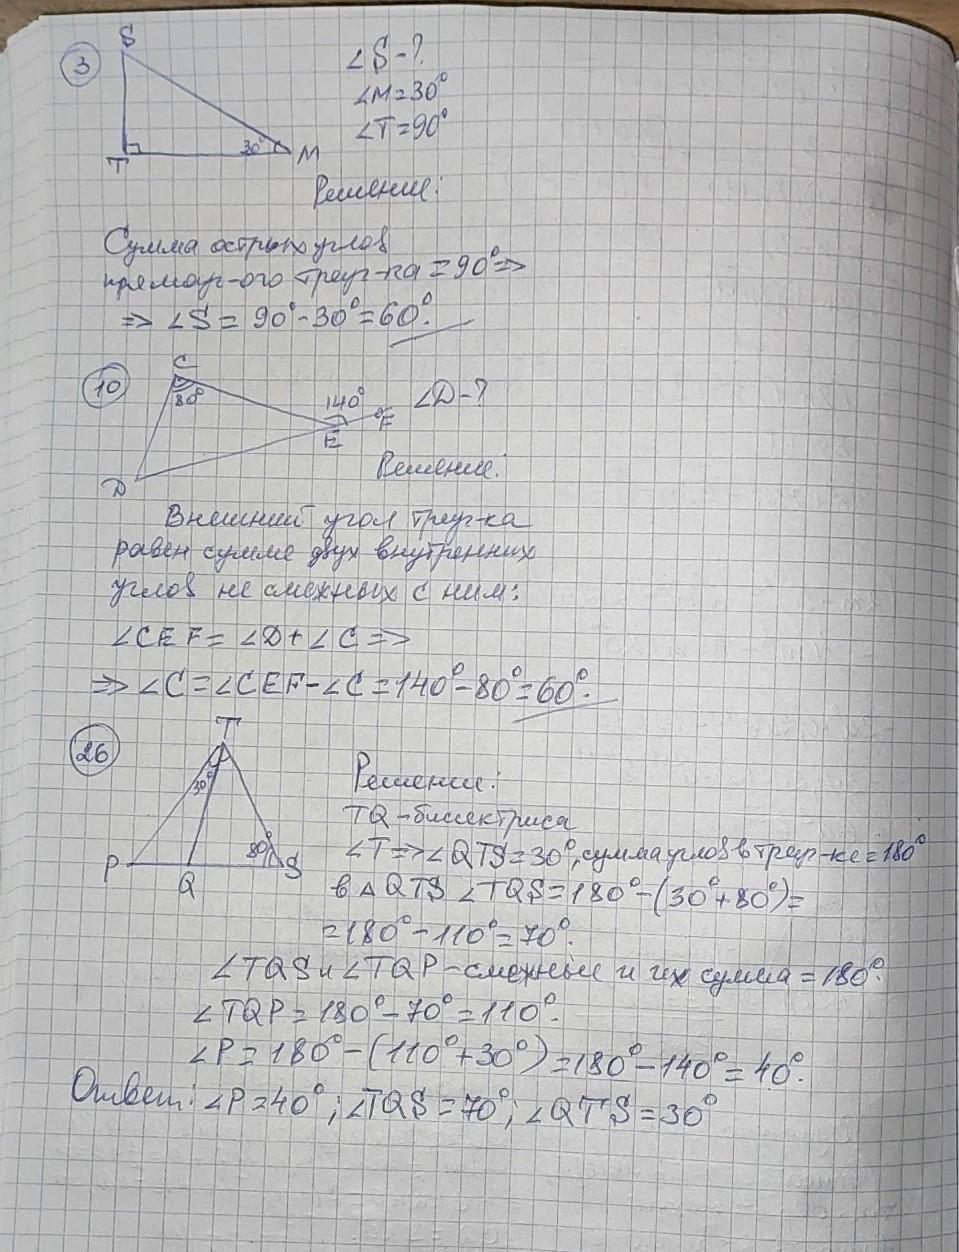 3
S
T
30°
M
∠S-?
∠M=30°
∠T=90°
Решение:
Сумма острых углов
прямоуг-ого треуг-ка = 90° =>
=> ∠S = 90°-30°=60°.
10
C
80°
140°
E
F
D
∠D-?
Решение:
Внешний угол треуг-ка
равен сумме двух внутренних
углов не смежных с ним:
∠CEF = ∠D + ∠C =>
=> ∠C = ∠CEF - ∠C = 140° - 80° = 60°.
26
T
30°
80°
P
Q
S
Решение:
TQ - биссектриса
∠T => ∠QTS = 30°, сумма углов в треуг-ке = 180°
в △ QTS ∠TQS = 180° - (30° + 80°) =
= 180° - 110° = 70°.
∠TQS и ∠TQP - смежные и их сумма = 180°.
∠TQP = 180° - 70° = 110°.
∠P = 180° - (110° + 30°) = 180° - 140° = 40°.
Ответ: ∠P = 40°; ∠TQS = 70°; ∠QTS = 30°